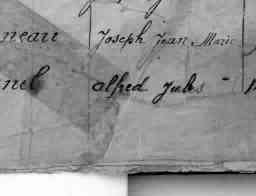 neau Joseph Jean Marie
nel alfred Jules